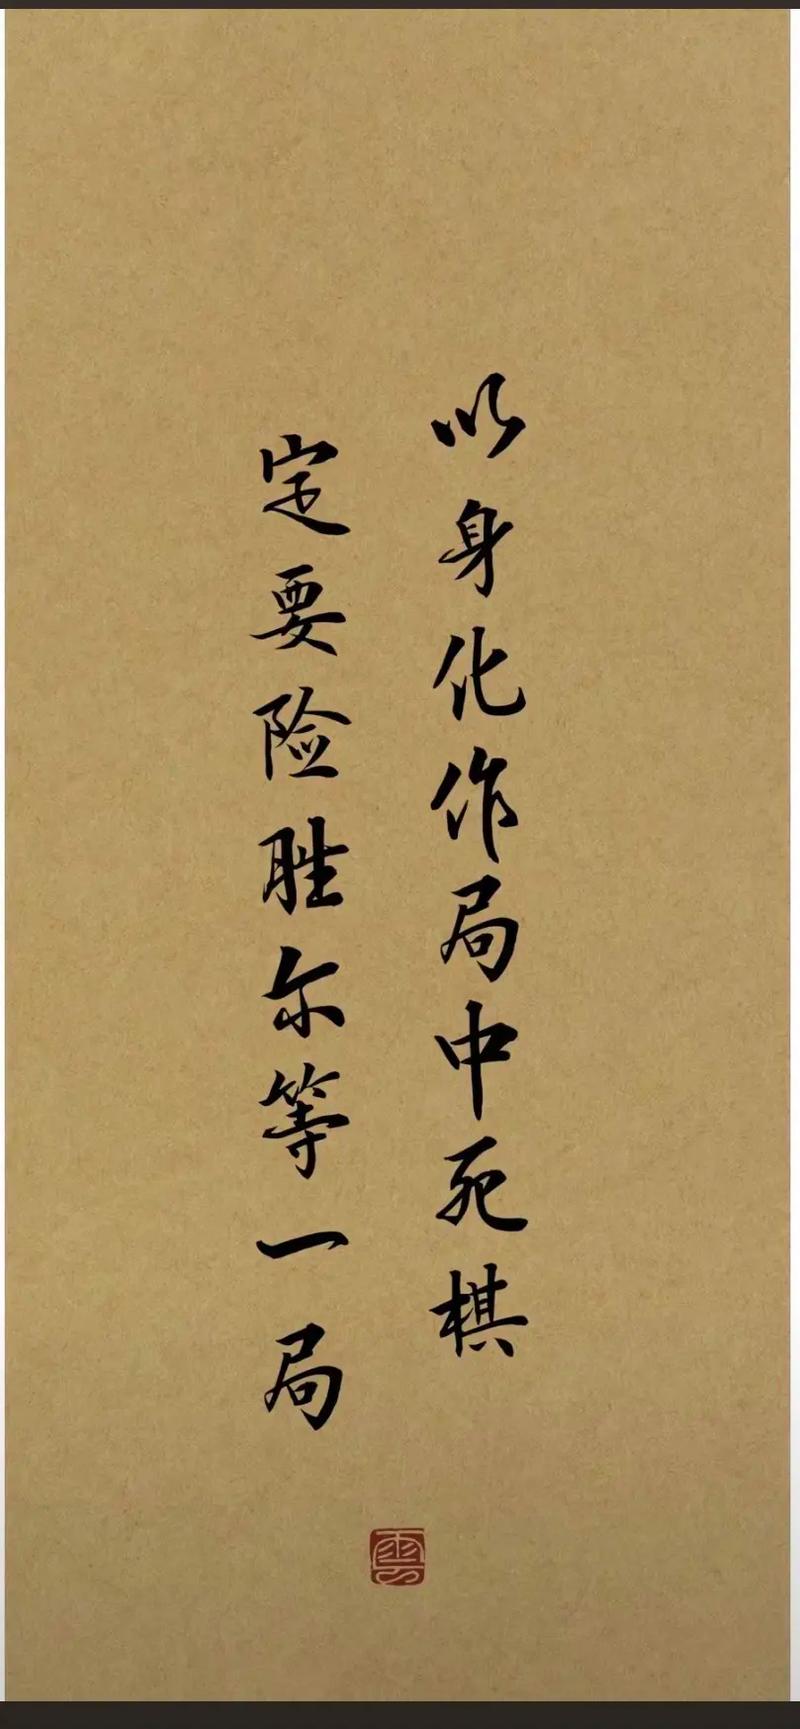 以身化作局中死棋
定要险胜尔等一局
雲